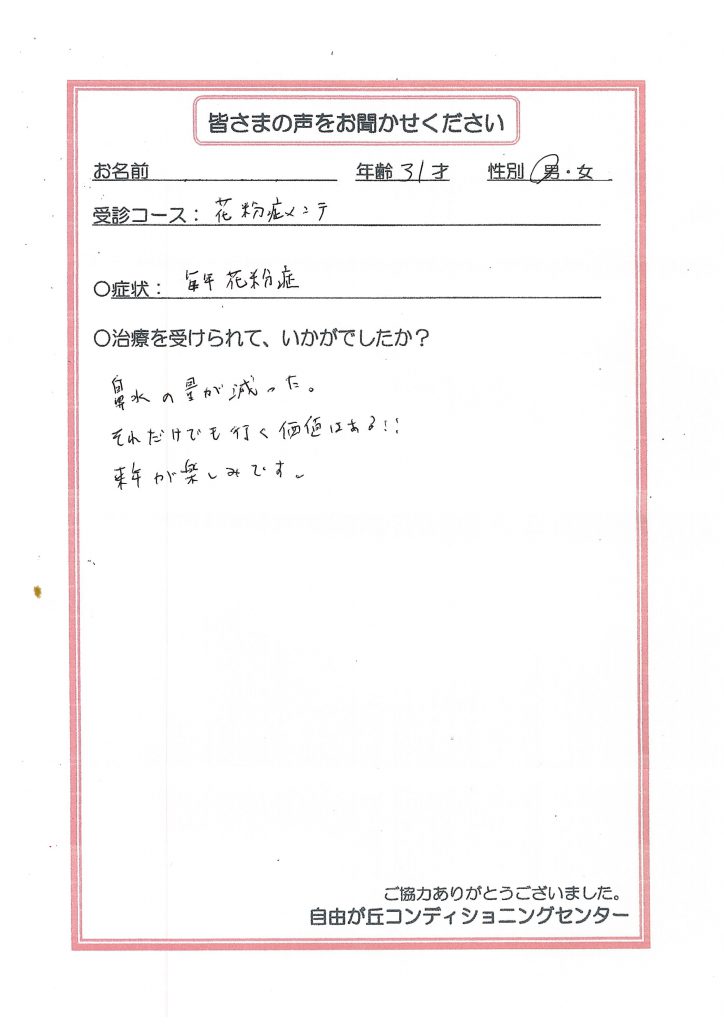 皆さまの声をお聞かせください
お名前 年齢 31 才 性別 男・女
受診コース： 花粉症メンテ
〇症状： 毎年 花粉症
〇治療を受けられて、いかがでしたか？
鼻水の量が減った。
それだけでも行く価値はある!!
来年が楽しみです。
ご協力ありがとうございました。
自由が丘コンディショニングセンター